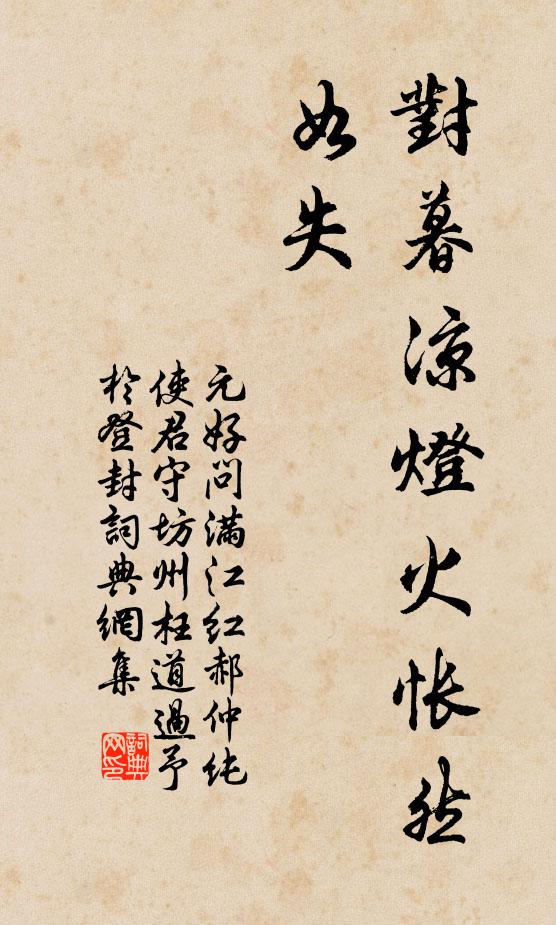 對暮涼燈火悵然
如失
元好問滿江紅郝仲純
使君守坊州枉道過予
於登封詞典網集
詞典
网印